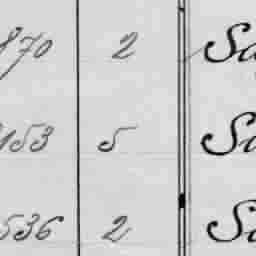 870 2 Sa
153 5 Sa
536 2 Sa